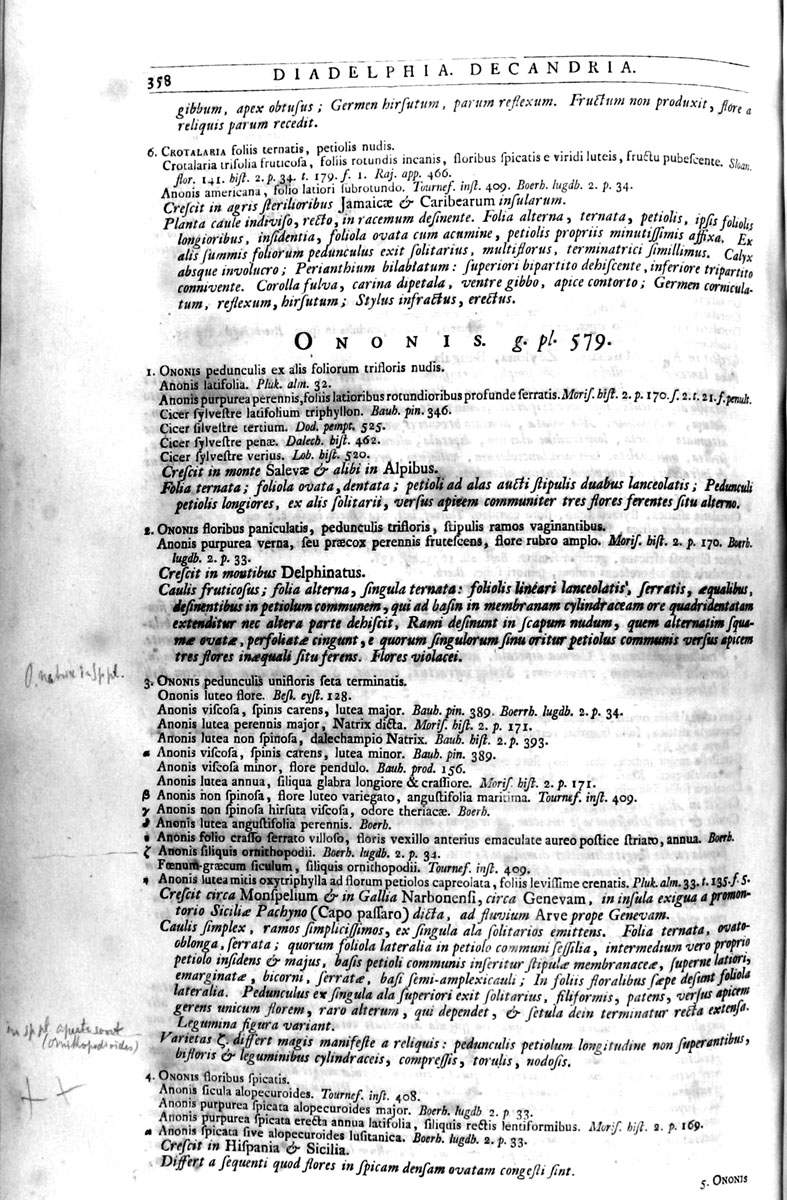 358 DIADELPHIA. DECANDRIA.
gibbum, apex obtuſus; Germen hirſutum, parum reflexum. Fructum non produxit, flore a
reliquis parum recedit.
6. CROTALARIA foliis ternatis, petiolis nudis.
Crotalaria trifolia fruticoſa, foliis rotundis incanis, floribus ſpicatis e viridi luteis, fructu pubeſcente. Sloan.
flor. 141. hiſt. 2. p. 34. t. 179. f. 1. Raj. app. 466.
Anonis americana, folio latiori ſubrotundo. Tournef. inſt. 409. Boerh. lugdb. 2. p. 34.
Creſcit in agris ſterilioribus Jamaicæ & Caribearum inſularum.
Planta caule indiviſo, recto, in racemum deſinente. Folia alterna, ternata, petiolis, ipſis foliolis
longioribus, inſidentia, foliola ovata cum acumine, petiolis propriis minutiſſimis affixa. Ex
alis ſummis foliorum pedunculus exit ſolitarius, multiflorus, terminatrici ſimillimus. Calyx
absque involucro; Perianthium bilabtatum: ſuperiori bipartito dehiſcente, inferiore tripartito
connivente. Corolla fulva, carina dipetala, ventre gibbo, apice contorto; Germen cornicula-
tum, reflexum, hirſutum; Stylus infractus, erectus.
ONONIS. g. pl. 579.
1. ONONIS pedunculis ex alis foliorum trifloris nudis.
Anonis latifolia. Pluk. alm. 32.
Anonis purpurea perennis, foliis latioribus rotundioribus profunde ſerratis. Moriſ. hiſt. 2. p. 170. ſ. 2. t. 21. f. penult.
Cicer ſylveſtre latifolium triphyllon. Bauh. pin. 346.
Cicer ſilveſtre tertium. Dod. pempt. 525.
Cicer ſylveſtre penæ. Dalech. hiſt. 462.
Cicer ſylveſtre verius. Lob. hiſt. 520.
Creſcit in monte Salevæ & alibi in Alpibus.
Folia ternata; foliola ovata, dentata; petioli ad alas aucti ſtipulis duabus lanceolatis; Pedunculi
petiolis longiores, ex alis ſolitarii, verſus apicem communiter tres flores ferentes ſitu alterno.
2. ONONIS floribus paniculatis, pedunculis trifloris, ſtipulis ramos vaginantibus.
Anonis purpurea verna, ſeu præcox perennis fruteſcens, flore rubro amplo. Moriſ. hiſt. 2. p. 170. Boerh.
lugdb. 2. p. 33.
Creſcit in montibus Delphinatus.
Caulis fruticoſus; folia alterna, ſingula ternata: foliolis lineari lanceolatis, ſerratis, æqualibus,
deſinentibus in petiolum communem, qui ad baſin in membranam cylindraceam ore quadridentatam
extenditur nec altera parte dehiſcit, Rami deſinunt in ſcapum nudum, quem alternatim ſqua-
mæ ovatæ, perfoliatæ cingunt, e quorum ſingulorum ſinu oritur petiolus communis verſus apicem
tres flores inæquali ſitu ferens. Flores violacei.
O. natrix in Sp. pl.
3. ONONIS pedunculis unifloris ſeta terminatis.
Ononis luteo flore. Beſl. eyſt. 128.
Anonis viſcoſa, ſpinis carens, lutea major. Bauh. pin. 389. Boerrh. lugdb. 2. p. 34.
Anonis lutea perennis major, Natrix dicta. Moriſ. hiſt. 2. p. 171.
Anonis lutea non ſpinoſa, dalechampio Natrix. Bauh. hiſt. 2. p. 393.
α Anonis viſcoſa, ſpinis carens, lutea minor. Bauh. pin. 389.
Anonis viſcoſa minor, flore pendulo. Bauh. prod. 156.
Anonis lutea annua, ſiliqua glabra longiore & craſſiore. Moriſ. hiſt. 2. p. 171.
β Anonis non ſpinoſa, flore luteo variegato, anguſtifolia maritima. Tournef. inſt. 409.
γ Anonis non ſpinoſa hirſuta viſcoſa, odore theriacæ. Boerh.
δ Anonis lutea anguſtifolia perennis. Boerh.
ε Anonis folio craſſo ſerrato villoſo, floris vexillo anterius emaculate aureo poſtice ſtriato, annua. Boerh.
ζ Anonis ſiliquis ornithopodii. Boerh. lugdb. 2. p. 34.
Fœnum-græcum ſiculum, ſiliquis ornithopodii. Tournef. inſt. 409.
η Anonis lutea mitis oxytriphylla ad florum petiolos capreolata, foliis leviſſime crenatis. Pluk. alm. 33. t. 135. f. 5.
Creſcit circa Monſpelium & in Gallia Narbonenſi, circa Genevam, in inſula exigua a promon-
torio Siciliæ Pachyno (Capo paſſaro) dicta, ad fluvium Arve prope Genevam.
Caulis ſimplex, ramos ſimpliciſſimos, ex ſingula ala ſolitarios emittens. Folia ternata, ovato-
oblonga, ſerrata; quorum foliola lateralia in petiolo communi ſeſſilia, intermedium vero proprio
petiolo inſidens & majus, baſis petioli communis inſeritur ſtipulæ membranaceæ, ſuperne latiori,
emarginatæ, bicorni, ſerratæ, baſi ſemi-amplexicauli; In foliis floralibus ſæpe deſunt foliola
lateralia. Pedunculus ex ſingula ala ſuperiori exit ſolitarius, filiformis, patens, verſus apicem
gerens unicum florem, raro alterum, qui dependet, & ſetula dein terminatur recta extenſa.
Legumina figura variant.
Varietas ζ. differt magis manifeſte a reliquis: pedunculis petiolum longitudine non ſuperantibus,
bifloris & leguminibus cylindraceis, compreſſis, torulis, nodoſis.
in sp. pl.
(ornithopodioides)
4. ONONIS floribus ſpicatis.
Anonis ſicula alopecuroides. Tournef. inſt. 408.
Anonis purpurea ſpicata alopecuroides major. Boerh. lugdb 2. p 33.
Anonis purpurea ſpicata erecta annua latifolia, ſiliquis rectis lentiformibus. Moriſ. hiſt. 2. p. 169.
α Anonis ſpicata ſive alopecuroides luſitanica. Boerh. lugdb. 2. p. 33.
Creſcit in Hiſpania & Sicilia.
Differt a ſequenti quod flores in ſpicam denſam ovatam congeſti ſint.
5. ONONIS